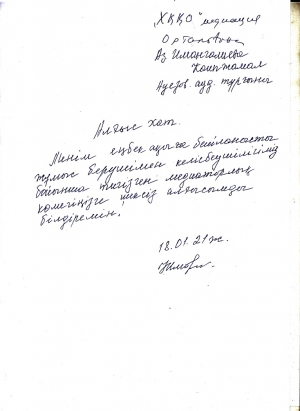 „ХҚКО" медиация
Орталығына
Аз. Иманғалиева
Ауезов. ауд. тұрғыны
Алғыс хат.
Менің еңбек ақыға байланысты
жұмыс берушімен келіспеушілігіміз
бойынша тигізген медиаторлық
көмегіңізге шексіз алғысымды
білдіремін!
18.01.21 ж.